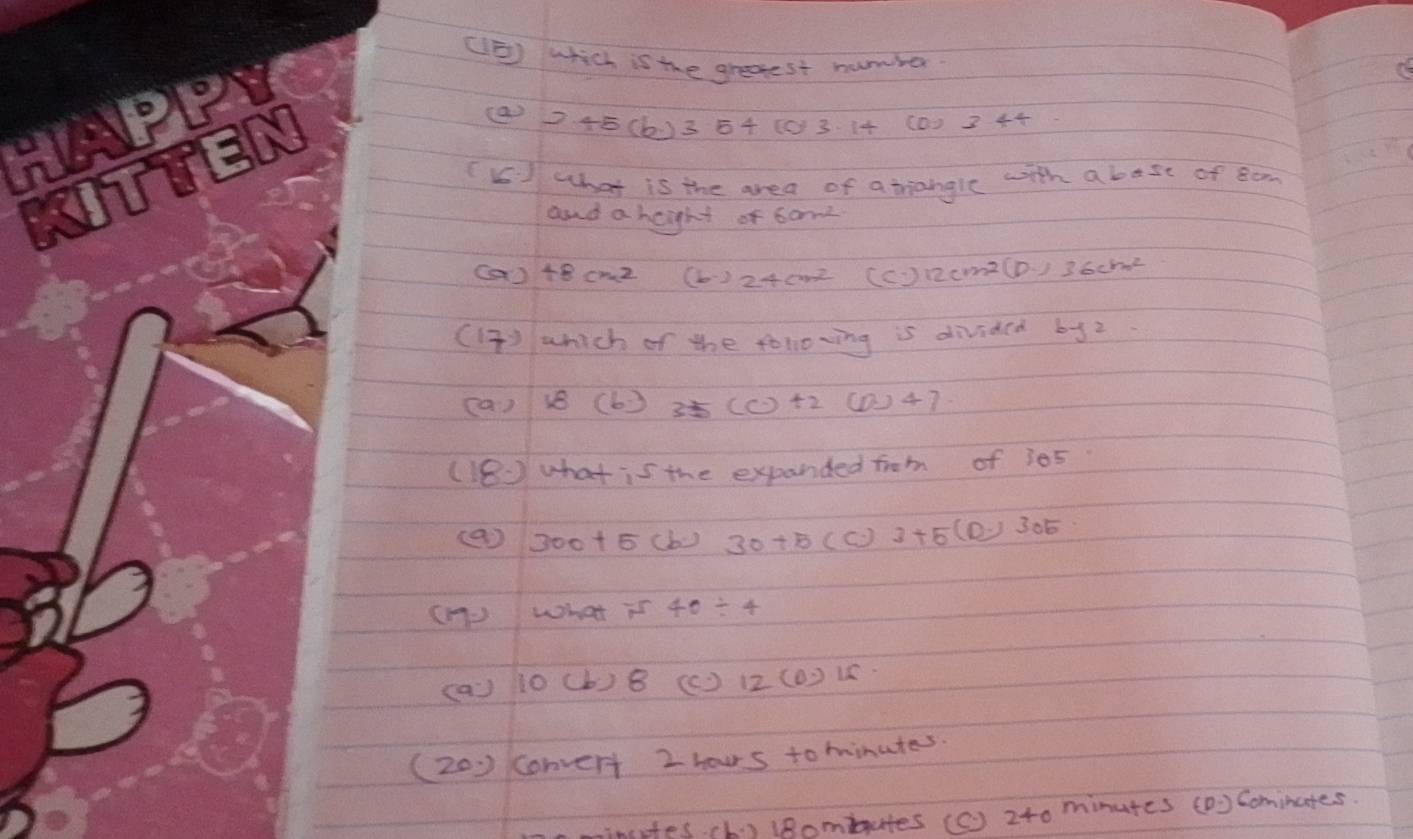 HAPPY
KITTEN
(15) which is the greatest number.
(a) 245 (b.) 354 (c) 3.14 (D.) 344.
(16.) what is the area of a triangle with a base of 8cm
and a height of 6cm2
(a.) 48 cm2 (b.) 24cm2 (c.) 12cm2 (D.) 36cm2
(17.) which of the following is divided by 2.
(a.) 18 (b.) 35 (c.) 42 (D.) 47.
(18.) what is the expanded from of 305.
(a) 300 + 5 (b.) 30 + 5 (c.) 3+5 (D.) 305.
(19.) what is 40 ÷ 4
(a.) 10 (b.) 8 (c.) 12 (D.)
(20.) convert 2 hours to minutes.
minutes (b.) 180 minutes (c.) 240 minutes (D.) 60minutes.